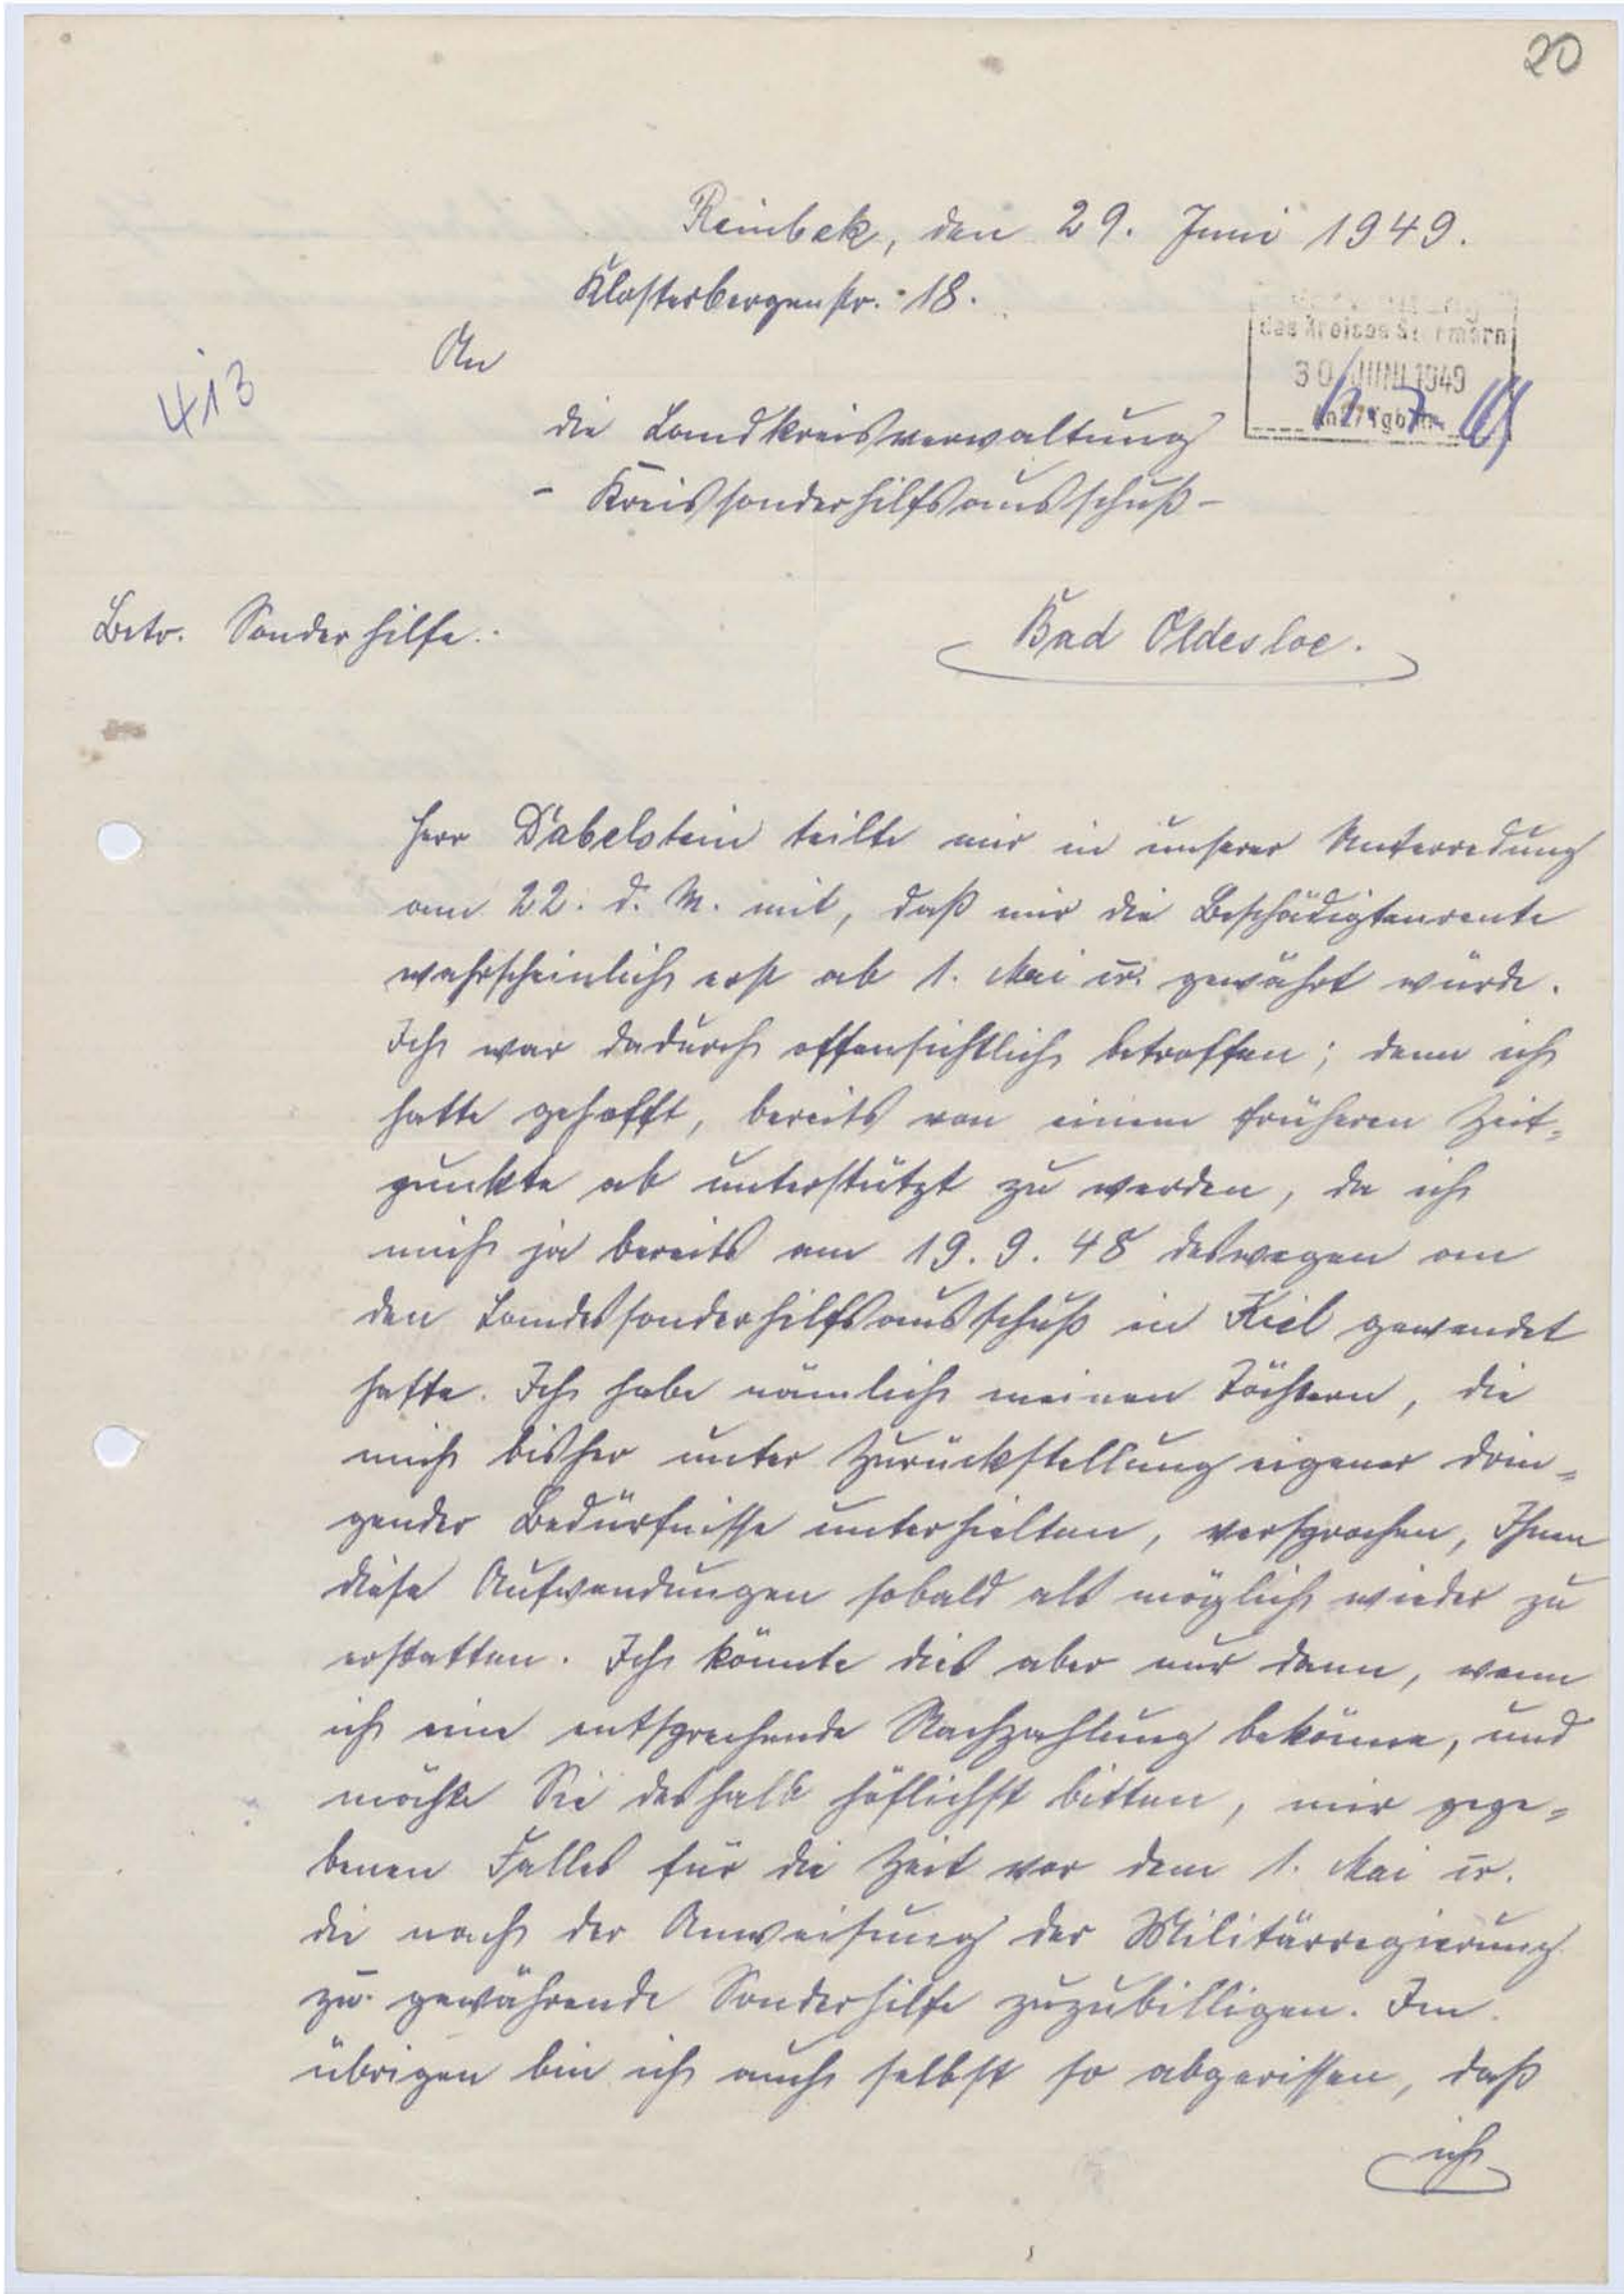 20
Reinbek, den 29. Juni 1949.
Klosterbergenstr. 18.
An
des Kreises Stormarn
30. JUNI 1949
413
die Landkreisverwaltung
- Kreissonderhilfsausschuß -
Betr. Sonderhilfe.
Bad Oldesloe.
Herr Dabelstein teilte mir in unserer Unterredung
am 22. d. M. mit, daß mir die Beschädigtenrente
wahrscheinlich erst ab 1. Mai cr. gewährt würde.
Ich war dadurch offensichtlich betroffen; denn ich
hatte gehofft, bereits von einem früheren Zeit-
punkte ab unterstützt zu werden, da ich
mich ja bereits am 19. 9. 48 deswegen an
den Landessonderhilfsausschuß in Kiel gewendet
hatte. Ich habe nämlich meinen Töchtern, die
mich bisher unter Zurückstellung eigener drin-
gender Bedürfnisse unterhielten, versprochen, Ihnen
diese Aufwendungen sobald als möglich wieder zu
erstatten. Ich könnte dies aber nur dann, wenn
ich eine entsprechende Nachzahlung bekäme, und
möchte Sie deshalb höflichst bitten, mir gege-
benen Falles für die Zeit vor dem 1. Mai cr.
die nach der Anweisung der Militärregierung
zu gewährende Sonderhilfe zuzubilligen. Im
übrigen bin ich auch selbst so abgerissen, daß
ich